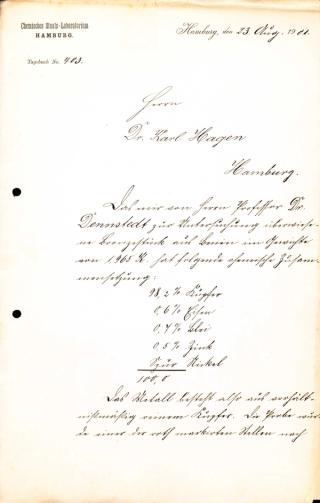 Chemisches Staats-Laboratorium
HAMBURG.
Hamburg, den 23. Aug. 1901.
Tagebuch No. 403.
Herrn
Dr. Karl Hagen
Hamburg.
Das mir von Herrn Professor Dr.
Dennstedt zur Untersuchung überwiese-
ne Bronzestück aus Benin im Gewichte
von 1,965 K hat folgende chemische Zusam-
mensetzung:
98,2 % Kupfer
0,6 % Eisen
0,7 % Blei
0,5 % Zink
Spur Nickel
100,0
Das Metall besteht also aus verhält-
nißmäßig reinem Kupfer. Die Probe wur-
de einer der roth markierten Stellen nach